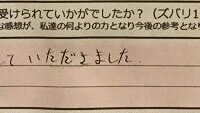 受けられていかがでしたか？（ズバリ1
な感想が、私達の何よりの力となり今後の参考とな
ていただきました.